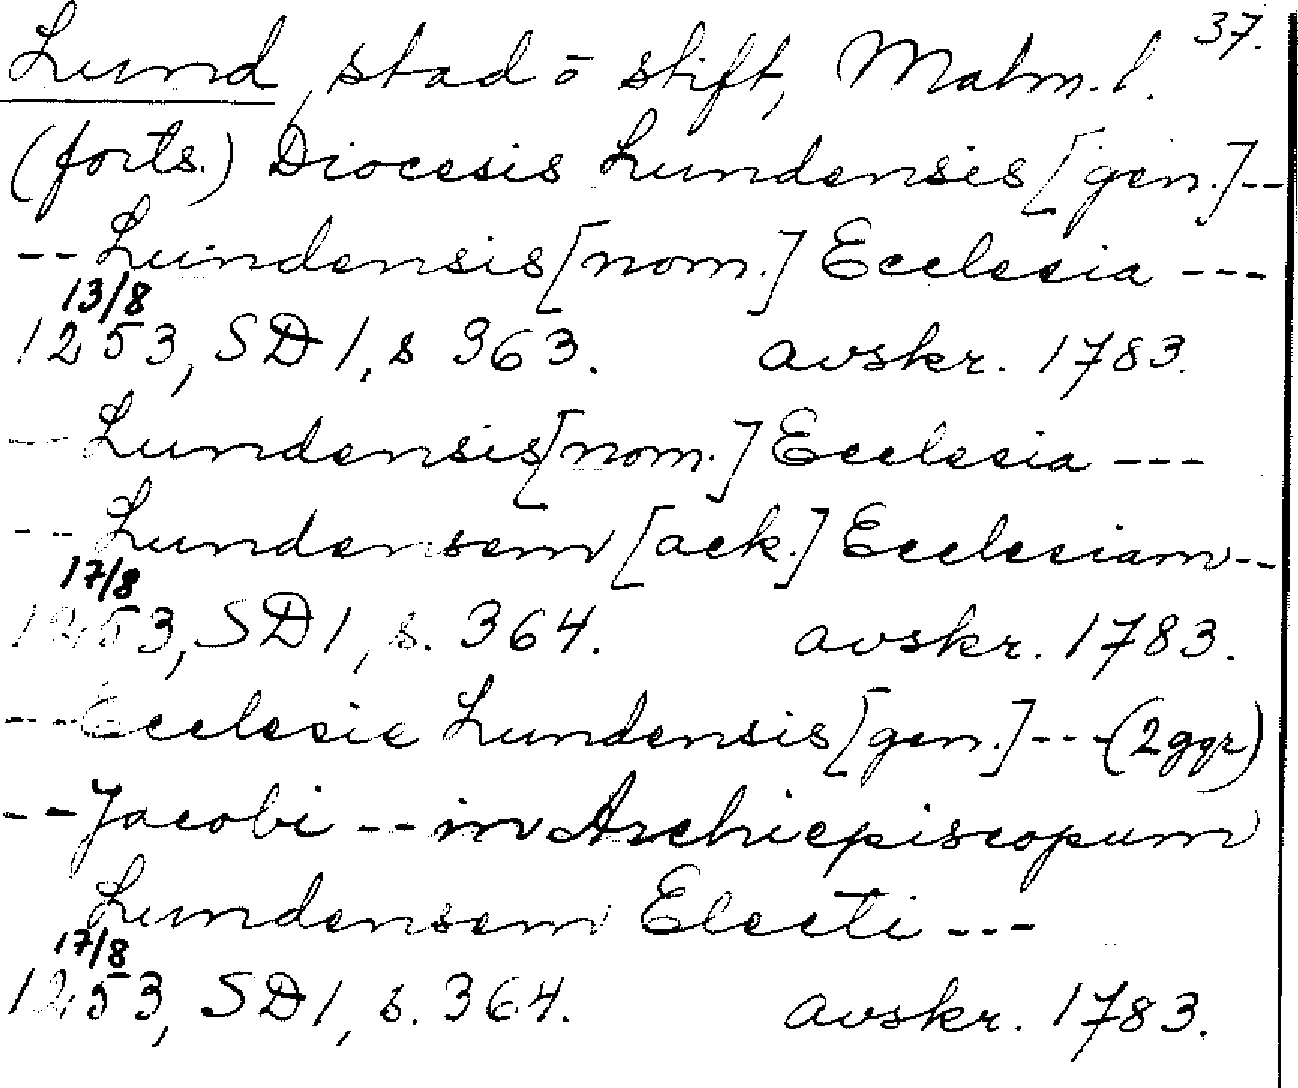 37.
Lund, stad o stift, Malm. l.
(forts.) Diocesis Lundensis [gen.]--
-- Lundensis [nom.] Ecclesia ---
13/8
1253, SD 1, s 363. avskr. 1783.
-- Lundensis [nom.] Ecclesia ---
--- Lundensem [ack.] Ecclesiam --
17/8
1253, SD 1, s. 364. avskr. 1783.
--- Ecclesie Lundensis [gen.] --- (2 ggr)
-- Jacobi -- in Archiepiscopum
Lundensem Electi ---
17/8
1253, SD 1, s. 364. avskr. 1783.